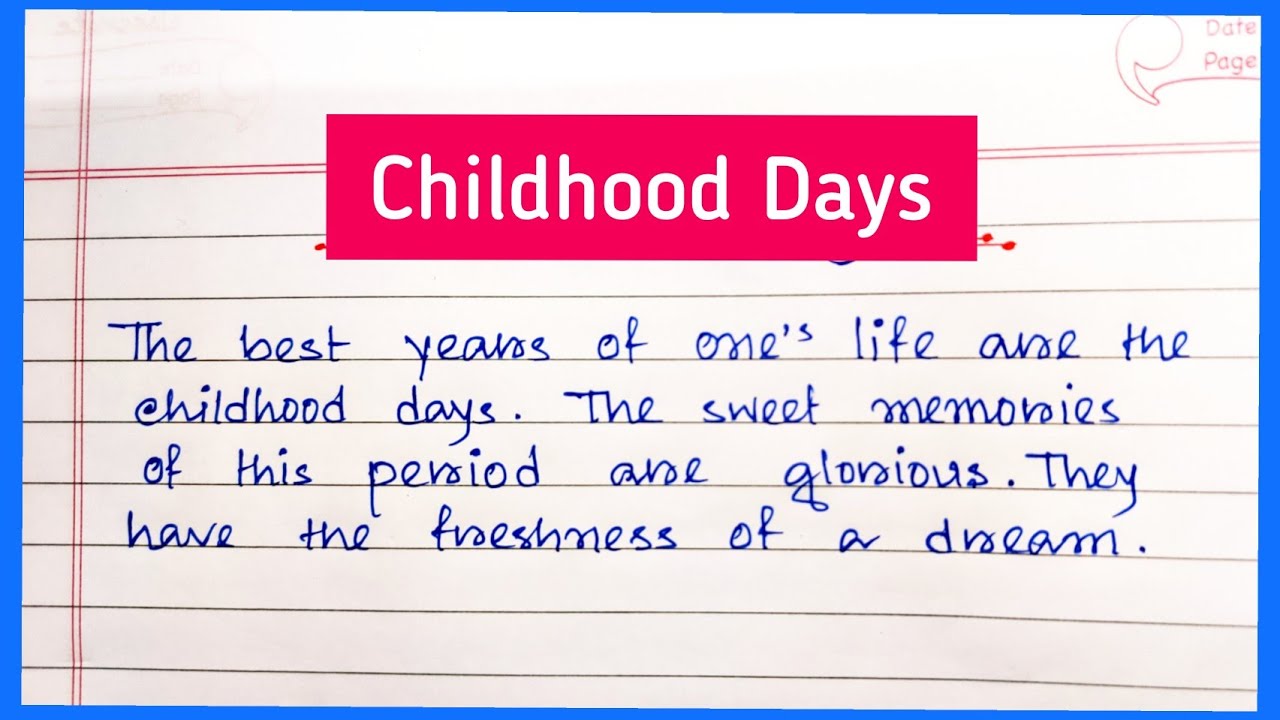 Date
Page
Childhood Days
The best years of one's life are the
childhood days. The sweet memories
of this period are glorious. They
have the freshness of a dream.